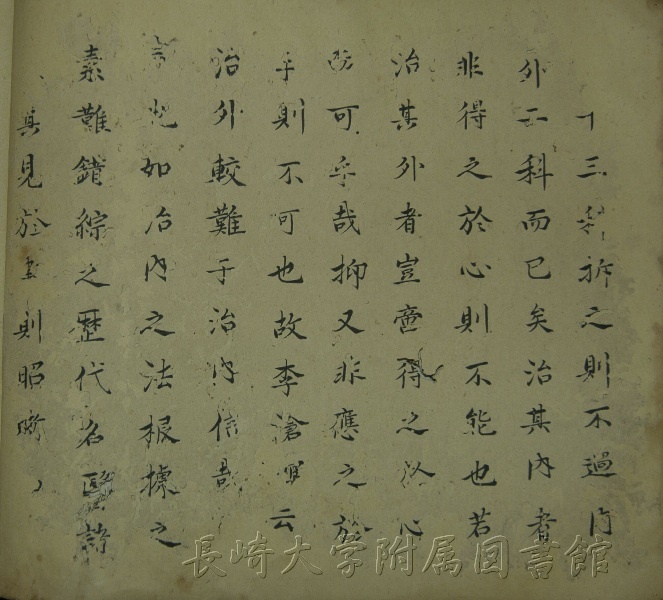 十三科拆之則不過內
外二科而已矣治其內者
非得之於心則不能也若
治其外者豈啻得之於心
可乎哉抑又非應之於
手則不可也故李滄溟云
治外較難于治內信哉
言也如治內之法根據之
素難錯綜之歷代名醫諸
其見於書則昭
長崎大学附属図書館